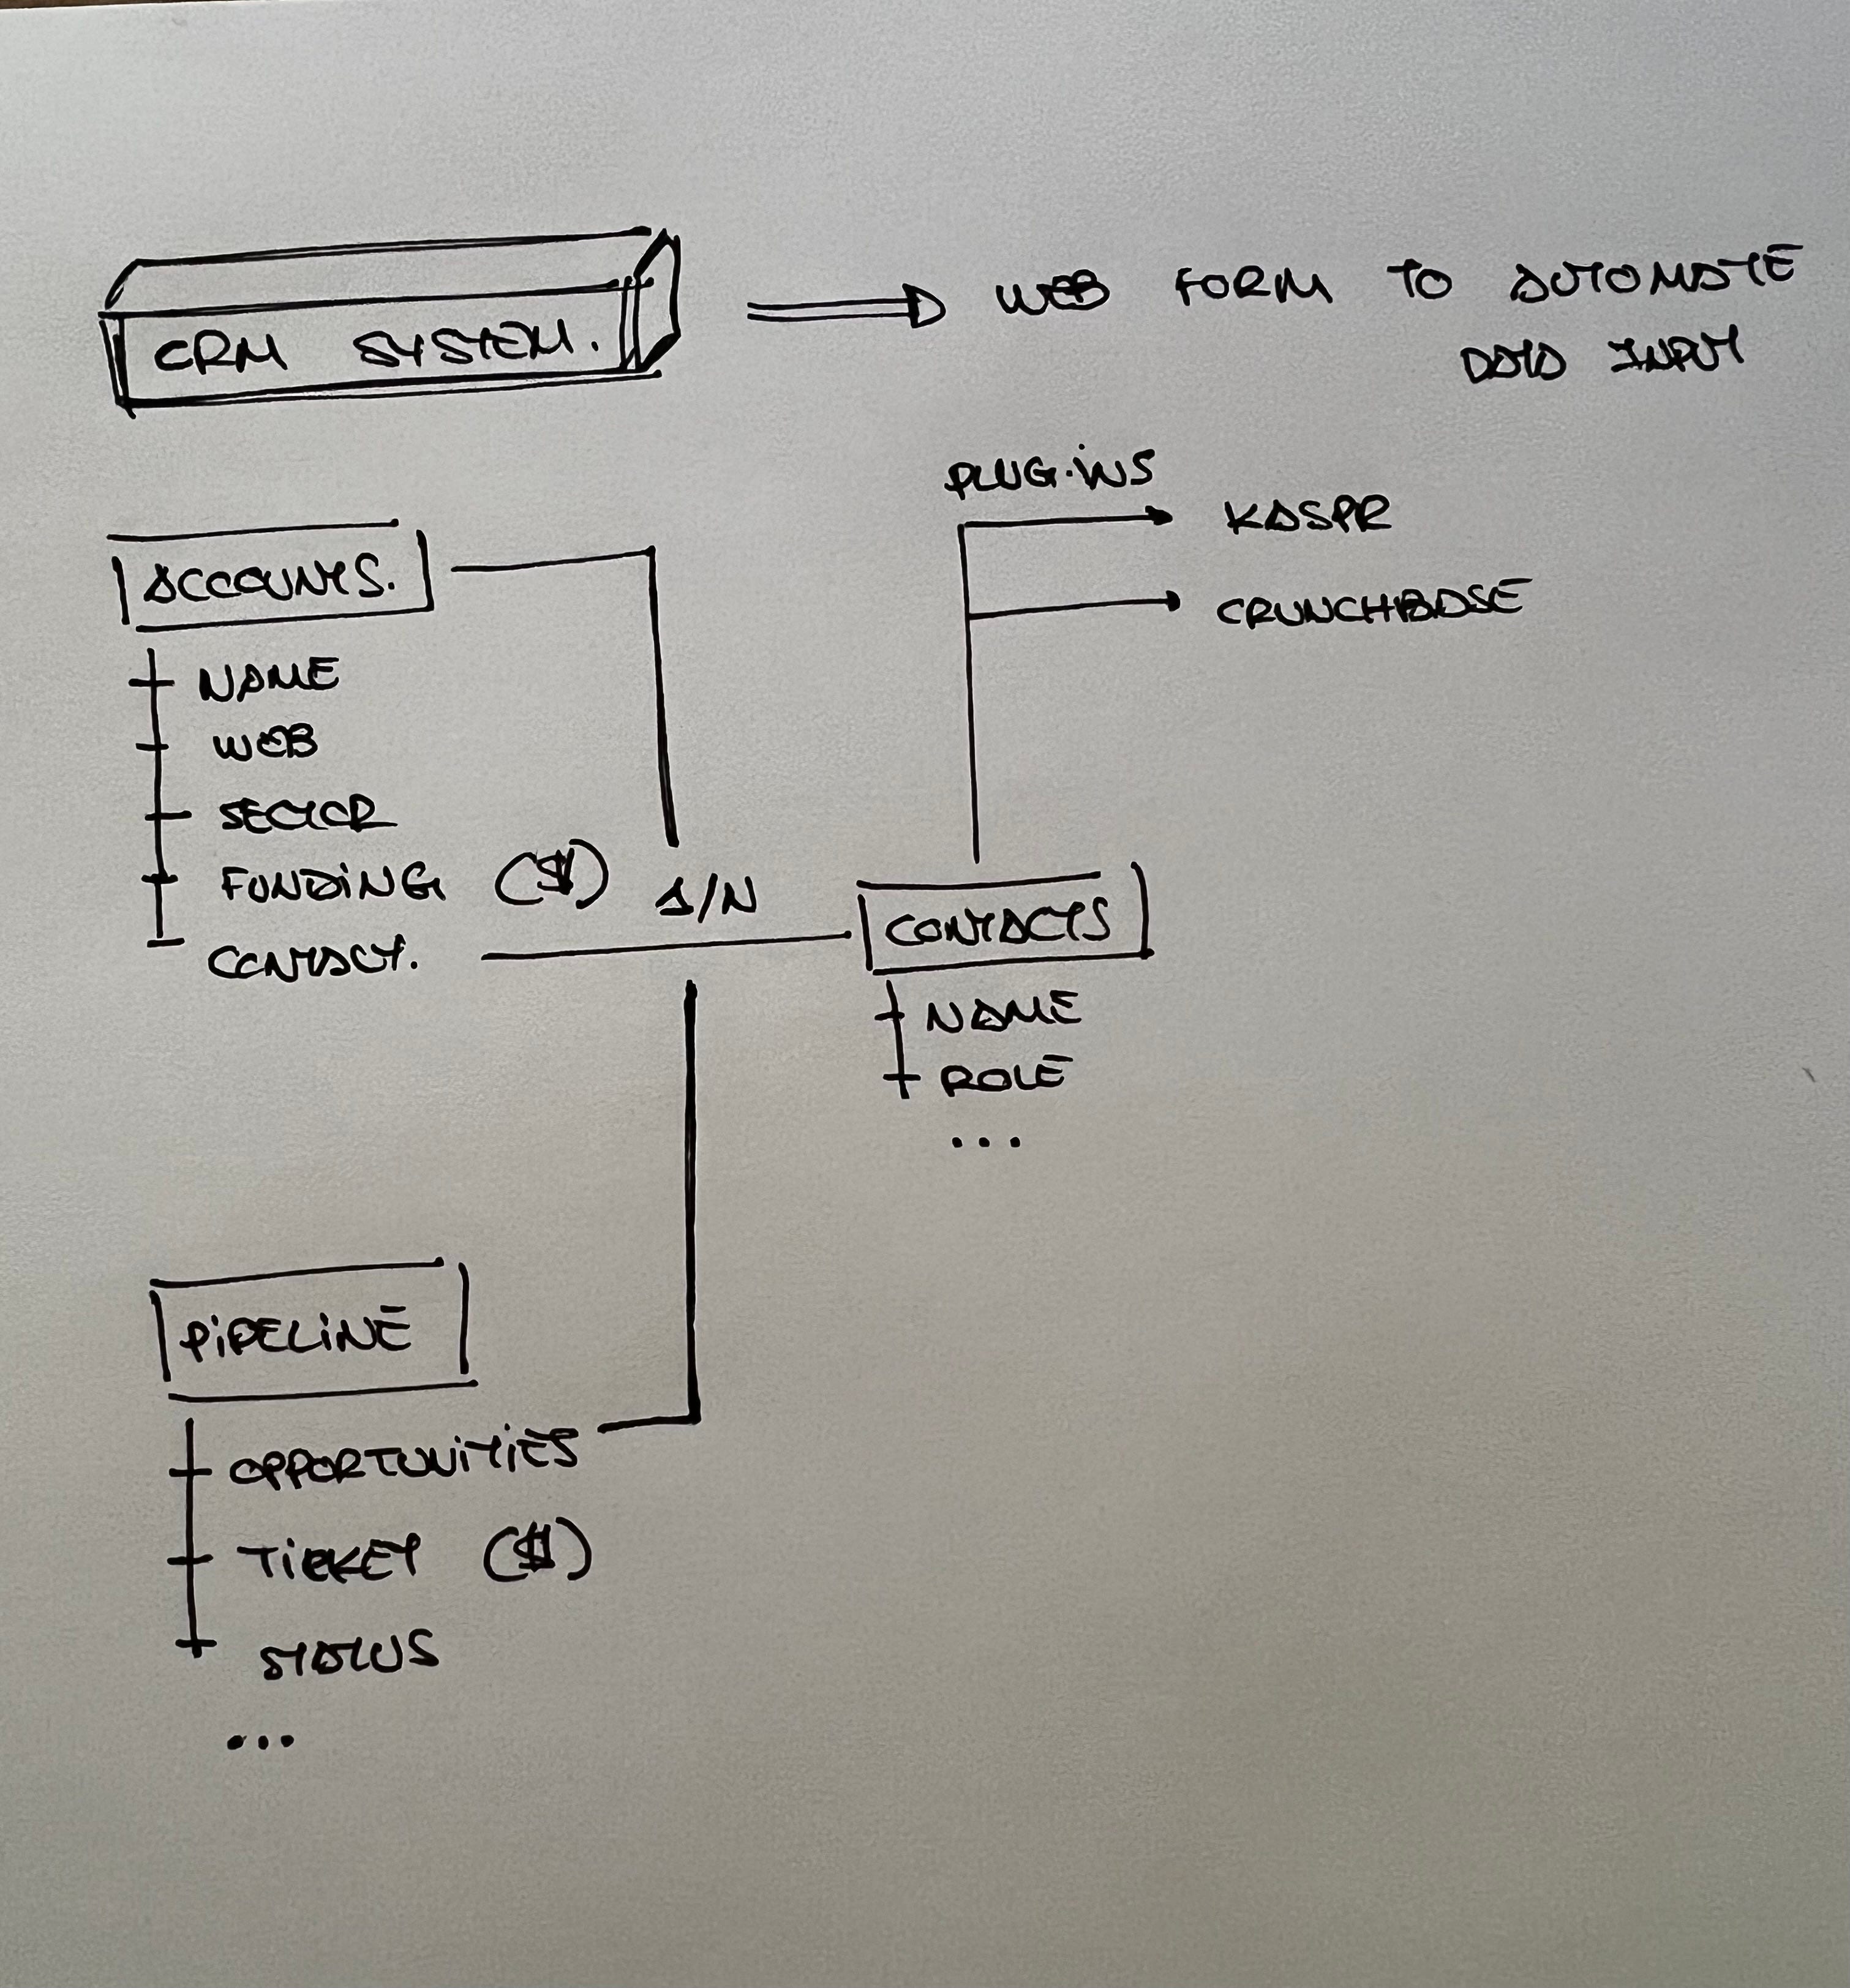 CRM SYSTEM.
WEB FORM TO AUTOMATE
DATA INPUT
PLUG-INS
KASPR
CRUNCHBASE
ACCOUNTS.
NAME
WEB
SECTOR
FUNDING ($)
CONTACT.
1/N
CONTACTS
NAME
ROLE
...
PIPELINE
OPPORTUNITIES
TICKET ($)
STATUS
...